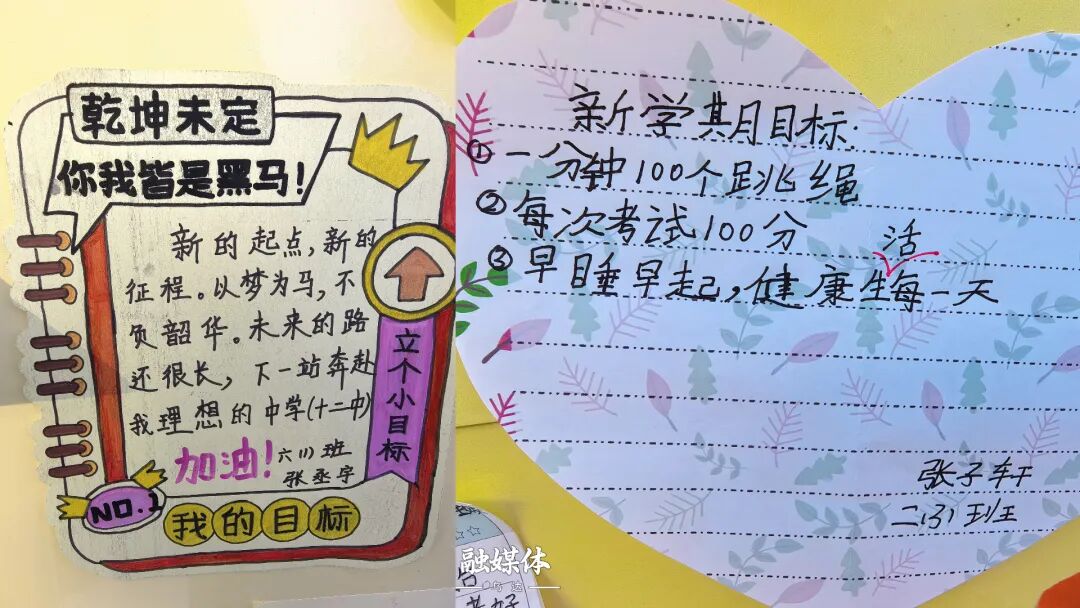 乾坤未定
你我皆是黑马!
新的起点,新的
征程。以梦为马,不
负韶华。未来的路
还很长,下一站奔赴
我理想的中学(十二中)
加油!
六(1)班
张丞宇
立个小目标
NO.1
我的目标
新学期目标:
①一分钟100个跳绳
②每次考试100分
活
③早睡早起,健康生每一天
张子轩
班
融媒体